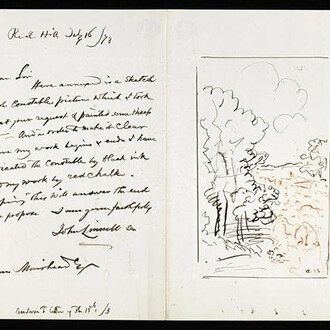 Red Hill July 16/73
Dear Sir
Here annexed is a sketch
Constable picture which I took
at your request & painted some sheep
And in order to make it clear
where my work begins & ends I have
the Constable by black ink
my work by red chalk.
this will answer the end
I am yours faithfully
John Linnell Sen
Muirhead Esq
answer to letter of the 15th